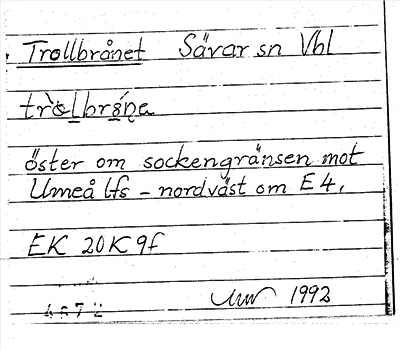 Trollbrånet Sävar sn Vbl
öster om sockengränsen mot
Umeå lfs - nordväst om E 4.
EK 20K 9f
1992